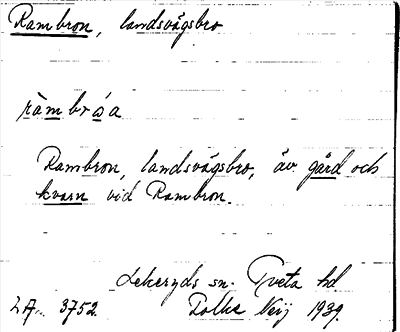 Rambron, landsvägsbro
ràmbrǿa
Rambron, landsvägsbro, äv. gård och
kvarn vid Rambron.
Lekeryds sn. Tveta hd
LA. 3752. Folke Neij 1939.